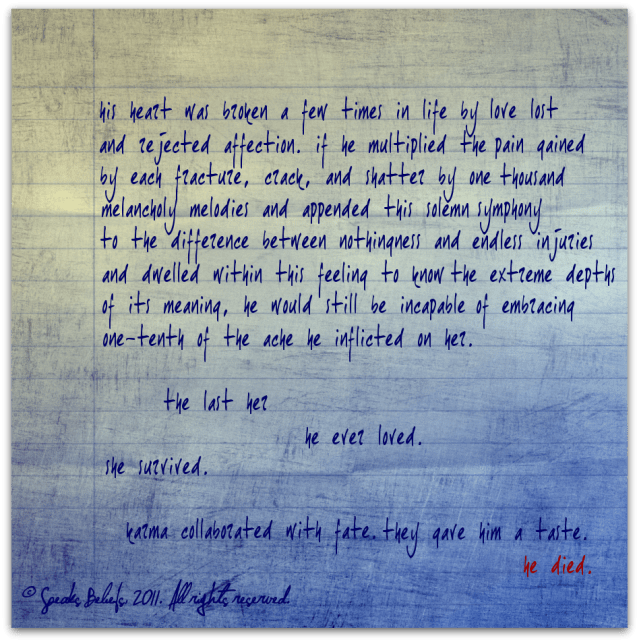 his heart was broken a few times in life by love lost
and rejected affection. if he multiplied the pain gained
by each fracture, crack, and shatter by one thousand
melancholy melodies and appended this solemn symphony
to the difference between nothingness and endless injuries
and dwelled within this feeling to know the extreme depths
of its meaning, he would still be incapable of embracing
one-tenth of the ache he inflicted on her.
the last her
he ever loved.
she survived.
karma collaborated with fate. they gave him a taste.
he died.
© Speaks Beliefs. 2011. All rights reserved.